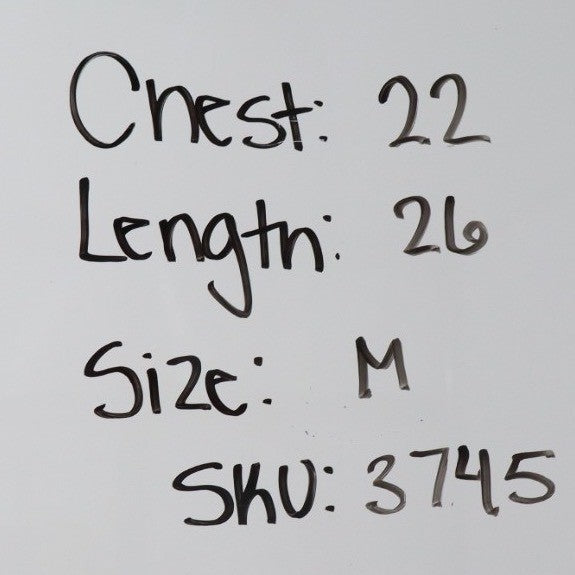 Chest: 22
Length: 26
Size: M
SKU: 3745